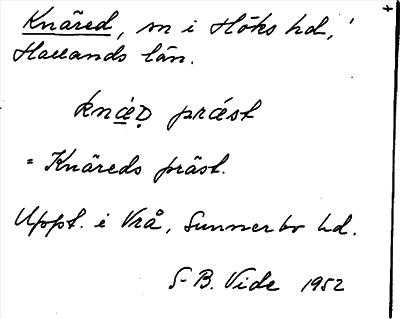 Knäred, sn i Höks hd,
Hallands län.
knæ̀Ḍ prǽst
= Knäreds präst.
Uppt. i Vrå, Sunnerbo hd.
S-B. Vide 1952